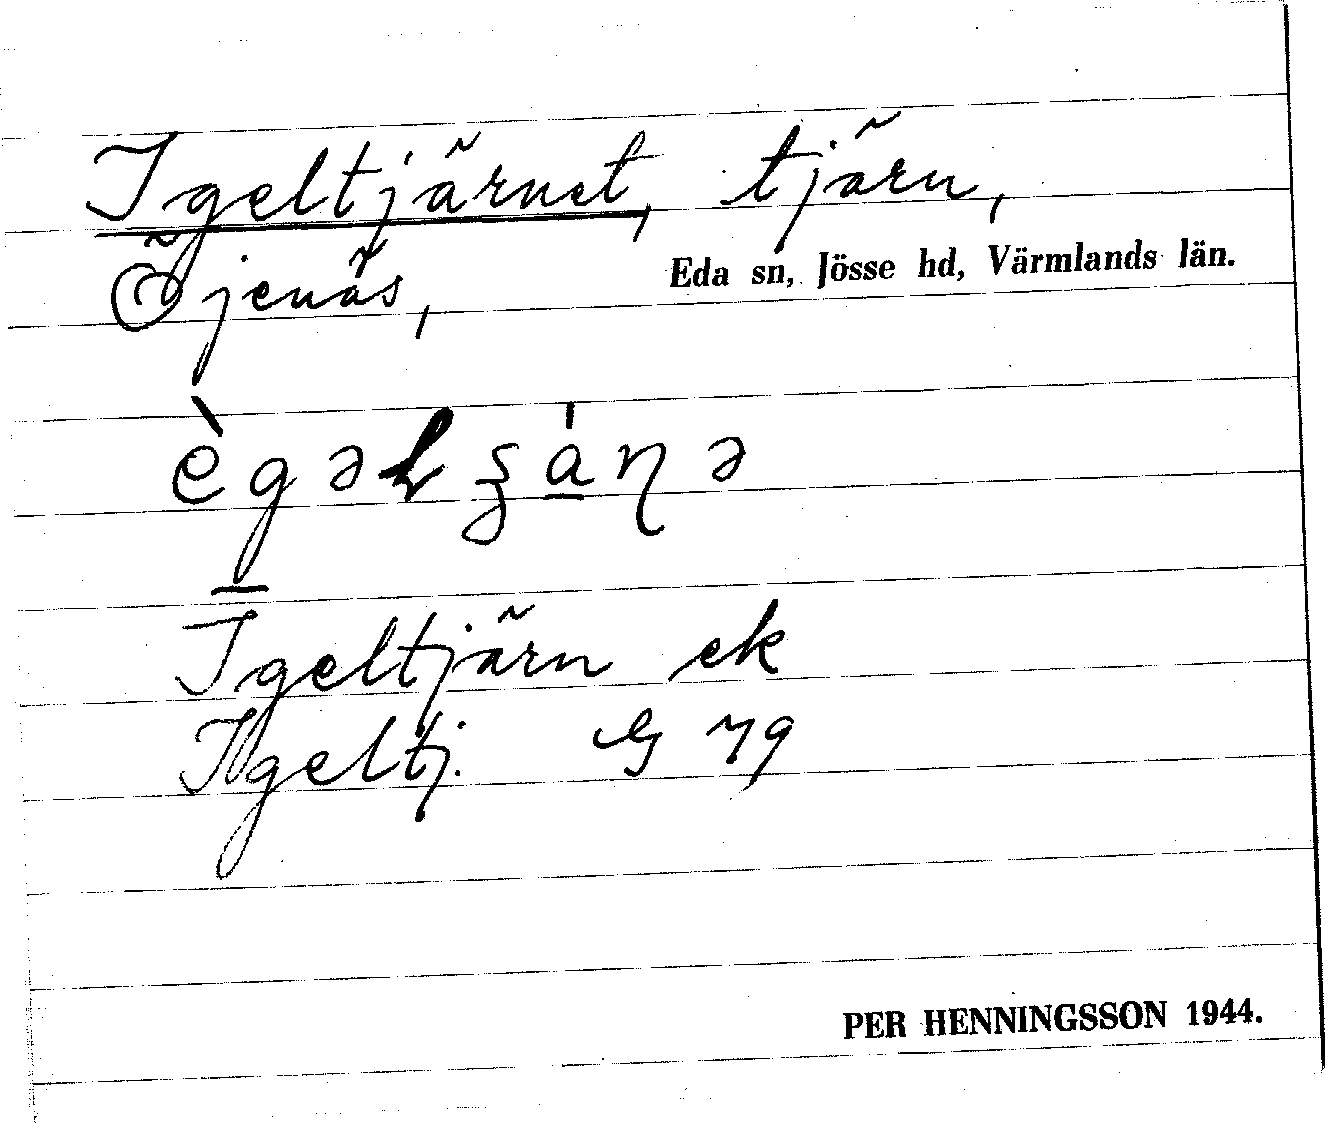 Igeltjärnet, tjärn,
Öjenäs, Eda sn, Jösse hd, Värmlands län.
ègəɫʂánə
Igeltjärn ek
Igeltj. G 79
PER HENNINGSSON 1944.